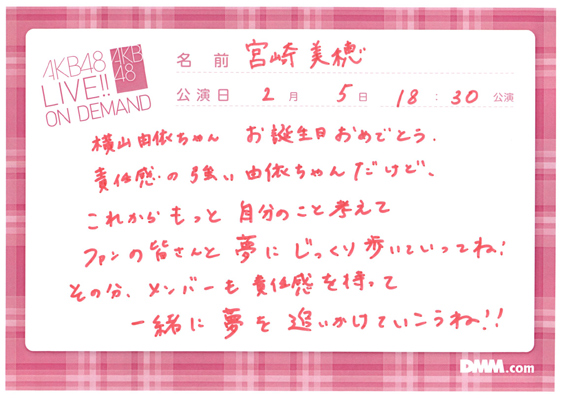 AKB48
LIVE!!
ON DEMAND
AKB
48
名前 宮崎美穂
公演日 2月 5日 18:30 公演
横山由依ちゃん お誕生日おめでとう.
責任感の強い由依ちゃんだけど、
これからもっと自分のこと考えて
ファンの皆さんと夢にじっくり歩いていってね!
その分、メンバーも責任感を持って
一緒に夢を追いかけていこうね!!
DMM.com